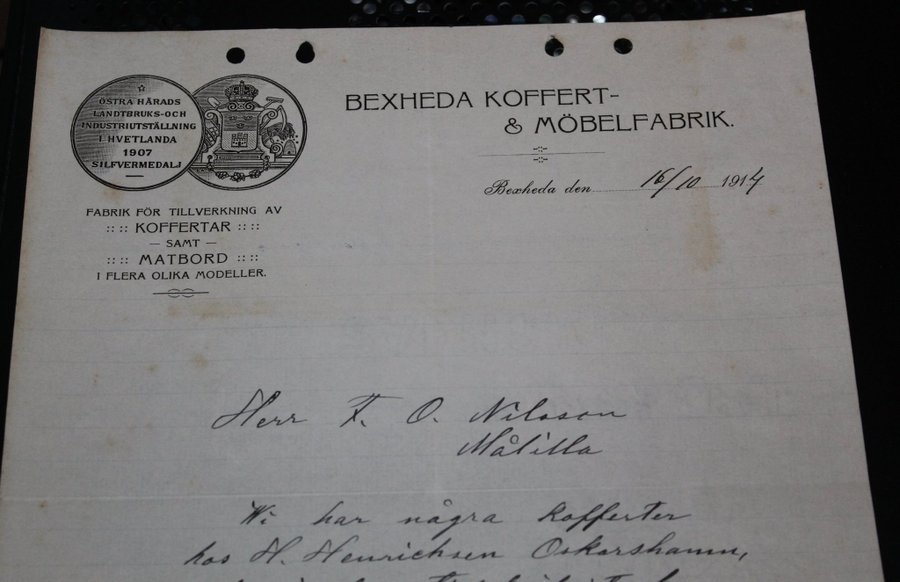 ÖSTRA HÄRADS
LANDTBRUKS-OCH
INDUSTRIUTSTÄLLNING
I HVETLANDA
1907
SILFVERMEDALJ
BEXHEDA KOFFERT-
& MÖBELFABRIK.
Bexheda den 16/10 1914
FABRIK FÖR TILLVERKNING AV
:: :: KOFFERTAR :: ::
— SAMT —
:: :: MATBORD :: ::
I FLERA OLIKA MODELLER.
Herr F. O. Nilsson
Målilla
Wi har några kofferter
hos H. Henrichsen Oskarshamn,